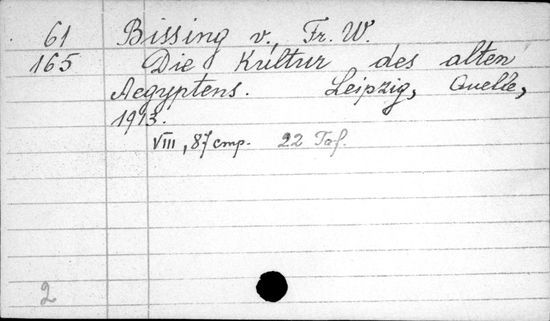 61 Bissing v. Fr. W.
165 Die Kultur des alten
Aegyptens. Leipzig, Quelle,
1913.
VIII, 87 стр. 22 Taf.
2